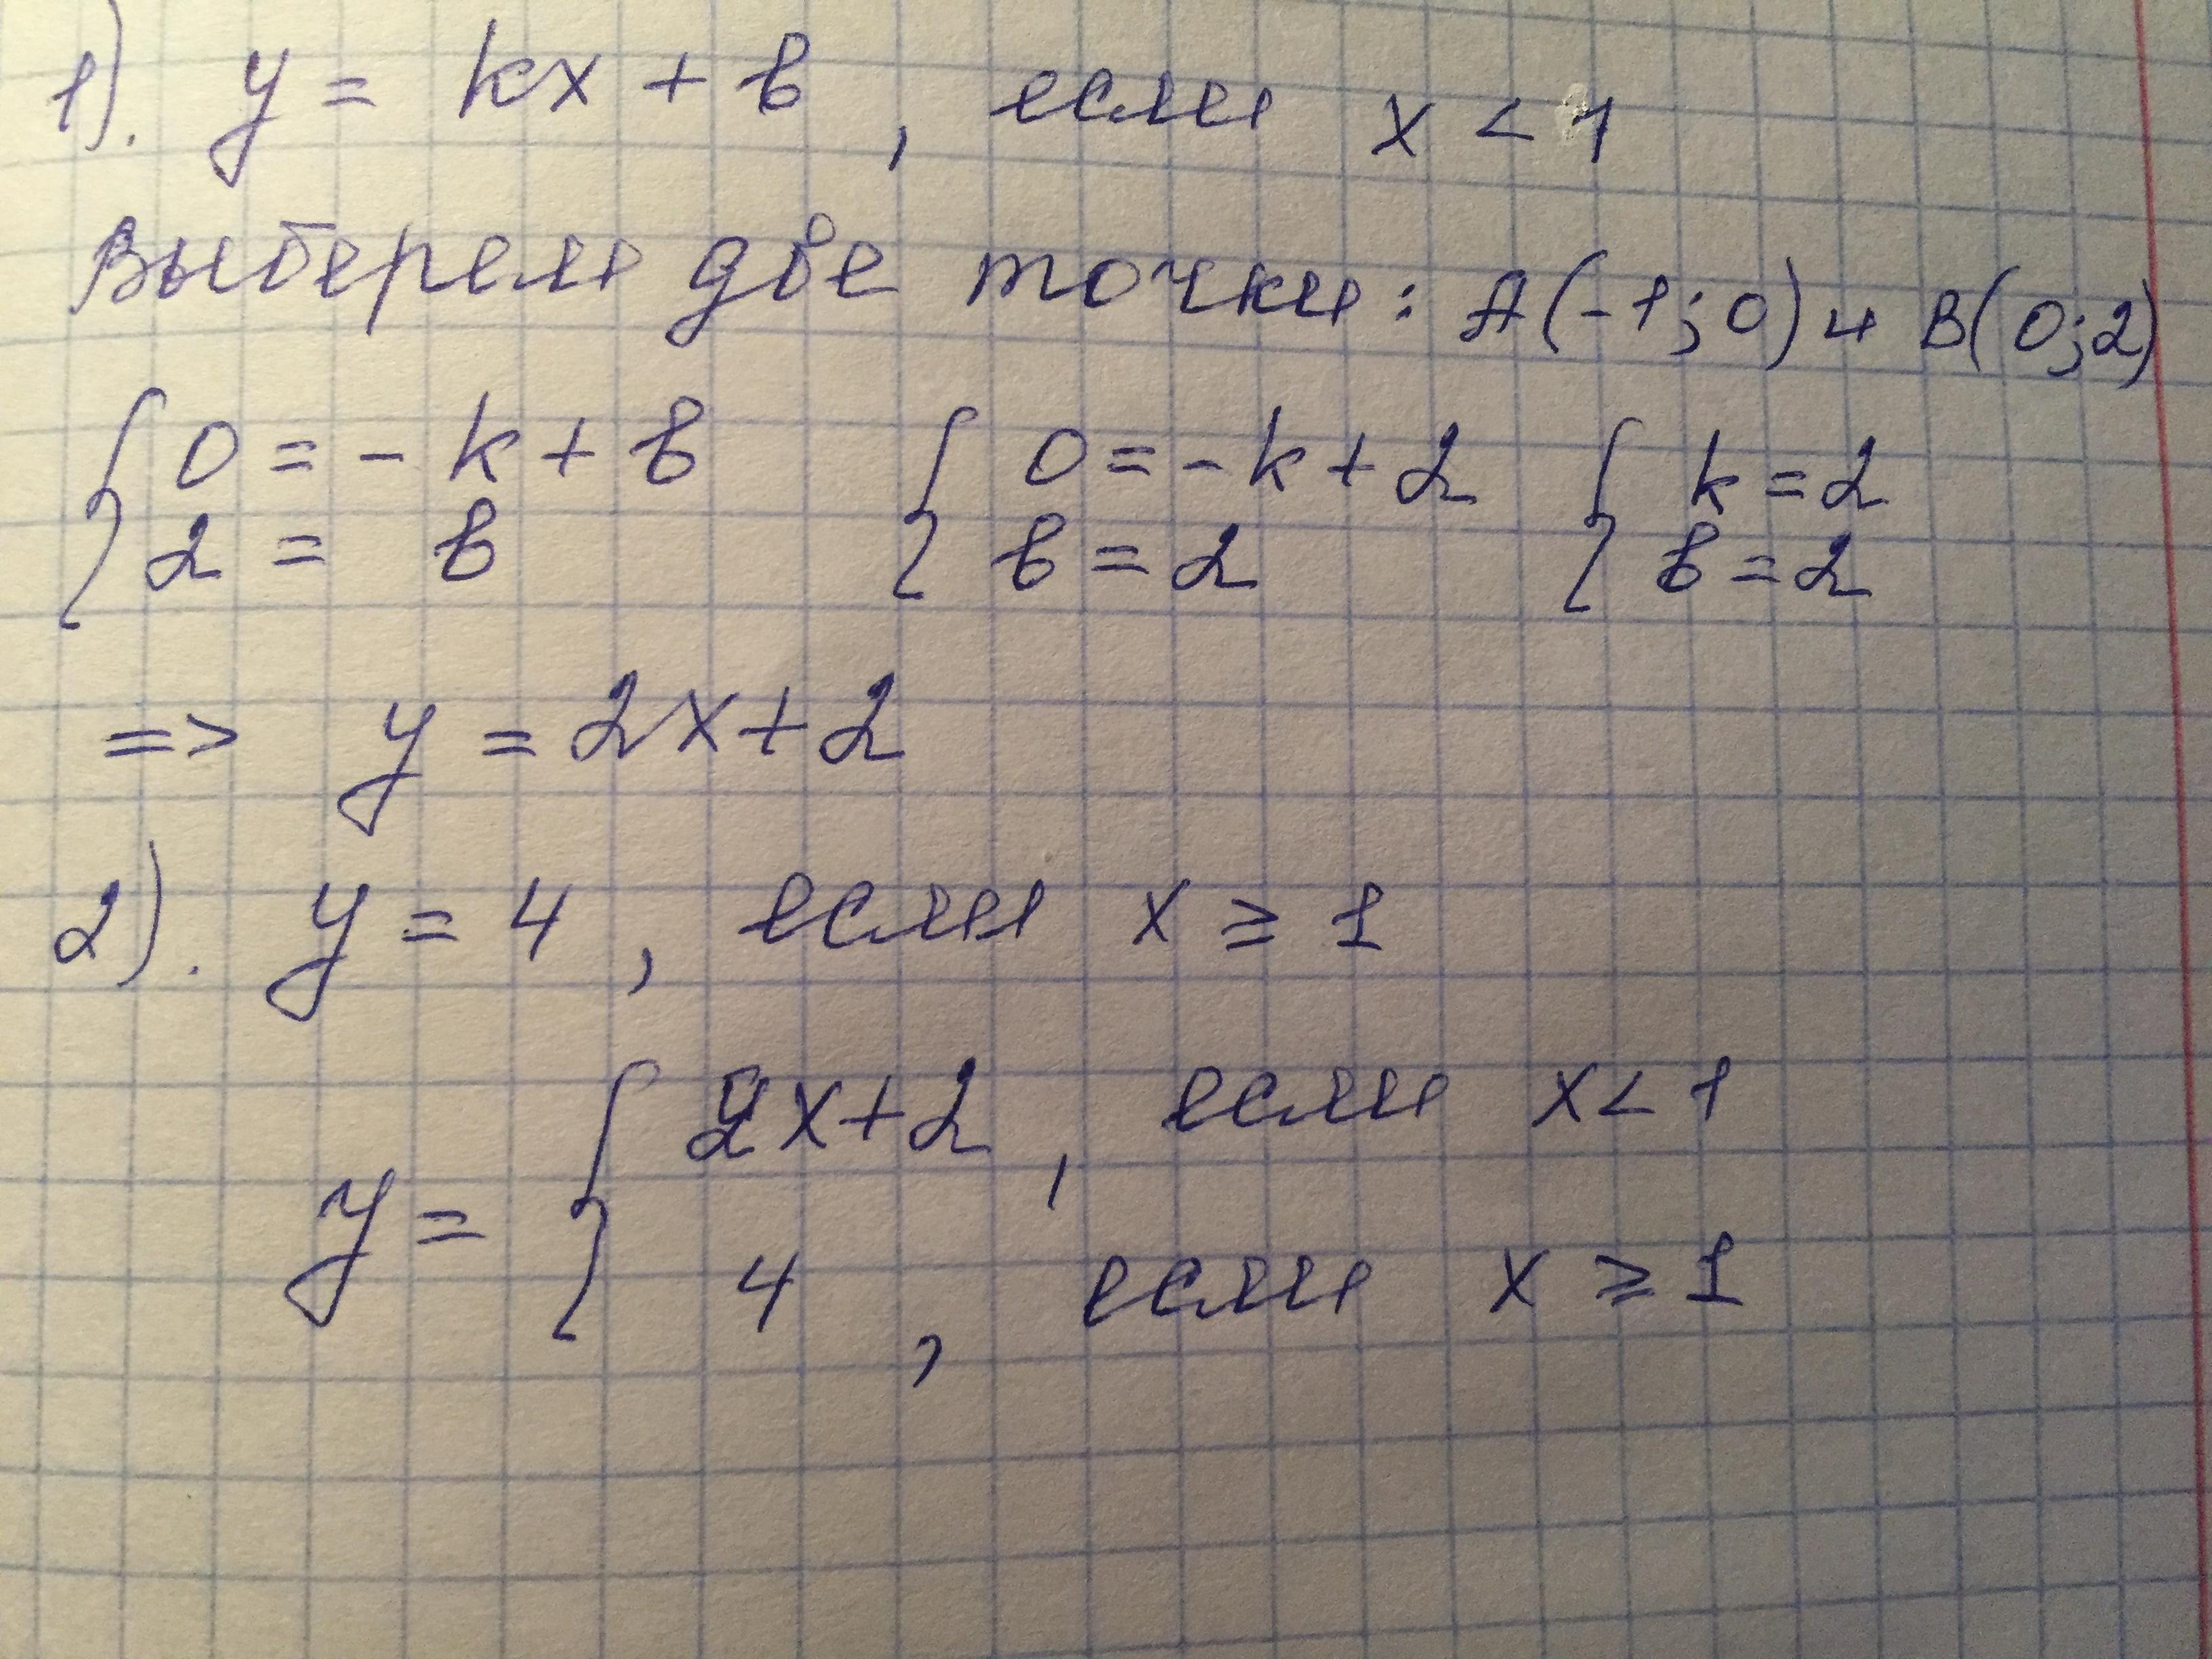 1). y = kx + b, если x < 1
Выберем две точки: A(-1;0) и B(0;2)
{ 0 = - k + b { 0 = - k + 2 { k = 2
{ 2 = b { b = 2 { b = 2
=> y = 2x + 2
2). y = 4, если x ≥ 1
y = { 2x + 2, если x < 1
4, если x ≥ 1